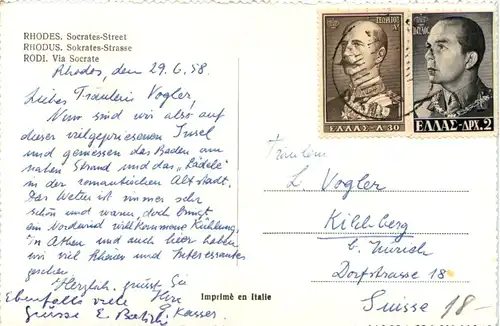 RHODES. Socrates-Street
RHODUS. Sokrates-Strasse
RODI. Via Socrate
Rhodos, den 29.6.58.
Liebes Fräulein Vogler,
Nun sind wir also auf
dieser vielgepriesenen Insel
und geniessen das Baden am
nahen Strand und das "Lädele"
in der romantischen Altstadt.
Das Wetter ist immer sehr
schön und warm, doch bringt
ein Nordwind willkommene Kühlung.
In Athen und auch hier haben
wir viel Schönes und Interessantes
gesehen.
Herzlich grüsst Sie
Ihre
Ebenfalls viele
Grüsse E.
Imprimé en Italie
Fräulein
L. Vogler
Kilchberg
b. Zürich
Dorfstrasse 18
Suisse
18.-
ΓΕΩΡΓΙΟΣ Α!
ΕΛΛΑΣ-Λ.30
ΠΑΥΛΟΣ
ΕΛΛΑΣ-ΔΡΧ.2